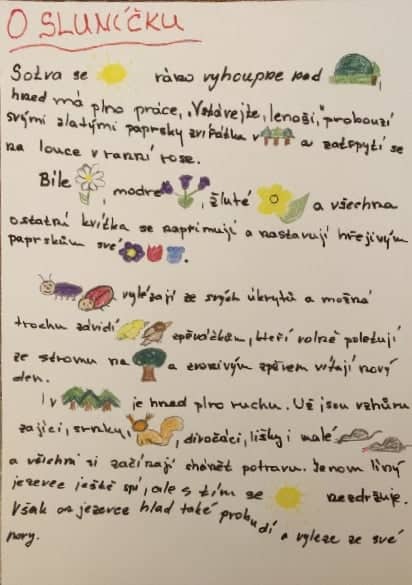 O SLUNÍČKU
Sotva se ráno vyhoupne nad ,
hned má plno práce. „Vstávejte, lenoši," probouzí
svými zlatými paprsky zvířátka v a zatřpytí se
na louce v ranní rose.
Bílé , modré , žluté a všechna
ostatní kvítka se napřimují a nastavují hřejivým
paprskům své .
vylézají ze svých úkrytů a možná
trochu závidí zpěváčkům, kteří volně poletují
ze stromu na a zvonivým zpěvem vítají nový
den.
I v je hned plno ruchu. Už jsou vzhůru
zajíci, srnky, , divočáci, lišky i malé
a všichni si začínají shánět potravu. Jenom líný
jezevec ještě spí, ale s tím se nezdržuje.
Však on jezevce hlad také probudí a vyleze ze své
nory.